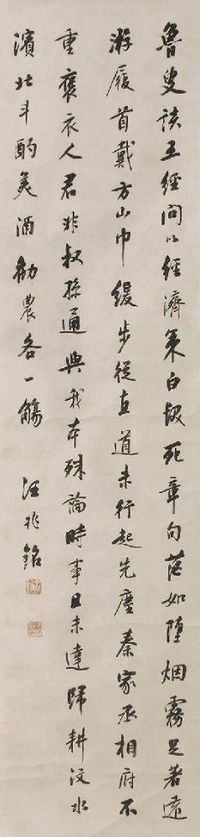 魯叟談五經問以經濟策白髮死章句茫如墮烟霧足著遠
游履首戴方山巾緩步從直道未行起先塵秦家丞相府不
重褒衣人君非叔孫通與我本殊論時事且未達歸耕汶水
濱北斗酌美酒勸農各一觴 汪兆銘